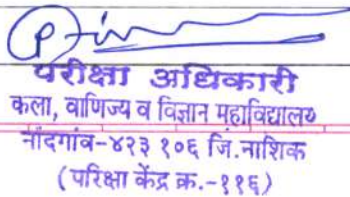 परीक्षा अधिकारी
कला, वाणिज्य व विज्ञान महाविद्यालय
नांदगांव-४२३ १०६ जि.नाशिक
(परिक्षा केंद्र क्र.-११६)